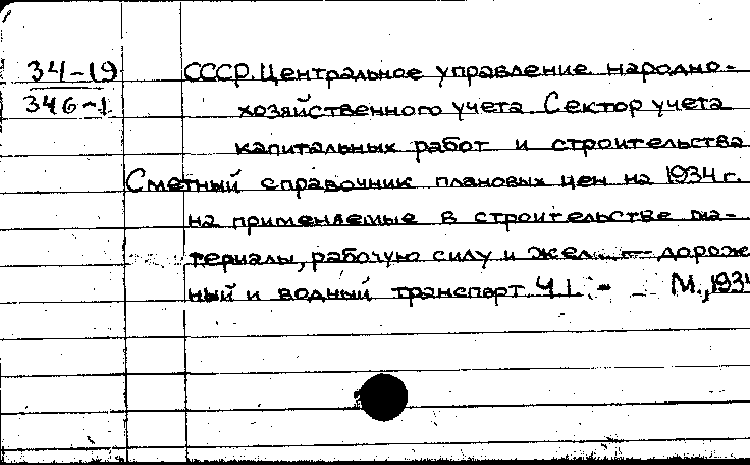 34-19
346-1
СССР. Центральное управление народно-
хозяйственного учета. Сектор учета
капитальных работ и строительства
Сметный справочник плановых цен на 1934 г.
на применяемые в строительстве ма-
териалы, рабочую силу и жел дорож
ный и водный транспорт Ч.I. - М., 1934